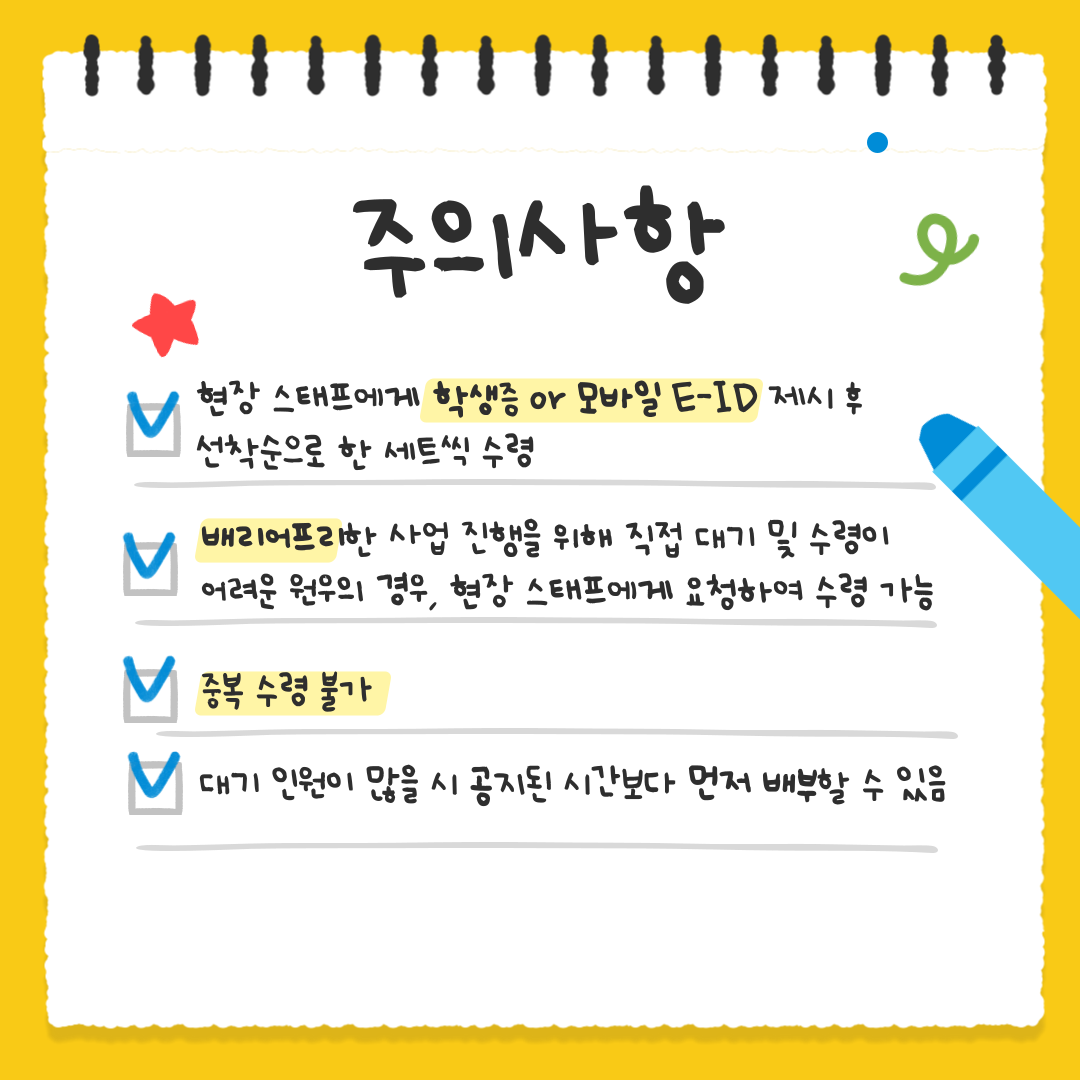 주의사항
현장 스태프에게 학생증 or 모바일 E-ID 제시 후
선착순으로 한 세트씩 수령
배리어프리한 사업 진행을 위해 직접 대기 및 수령이
어려운 원우의 경우, 현장 스태프에게 요청하여 수령 가능
중복 수령 불가
대기 인원이 많을 시 공지된 시간보다 먼저 배부할 수 있음